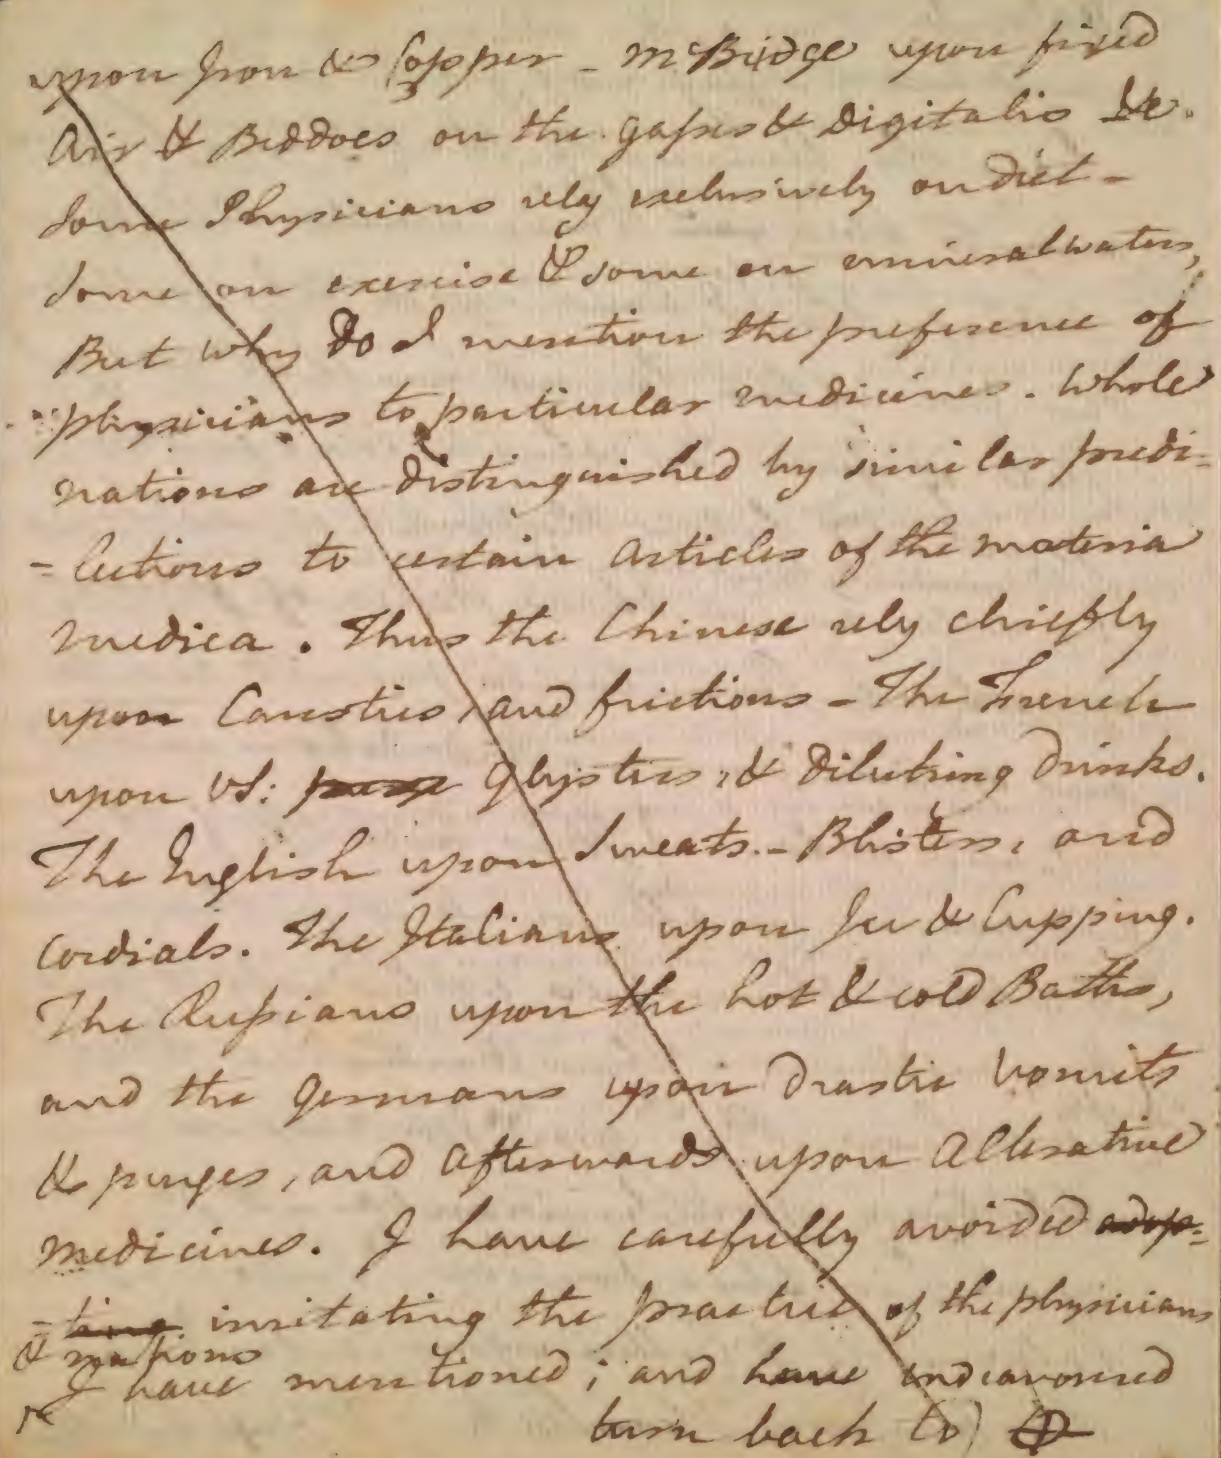 upon Iron & Copper - McBridge upon fixed
Air & Beddoes on the gasses & digitalis &c.
Some Physicians rely exclusively on diet -
Some on exercise & some on mineral waters,
But why do I mention the preference of
physicians to particular medicines. Whole
nations are distinguished by similar predi=
=lections to certain articles of the materia
medica. Thus the Chinese rely chiefly
upon Caustics, and frictions - The French
upon VS: Glysters, & diluting drinks.
The English upon Sweats. - Blisters, and
Cordials. The Italians upon Ice & Cupping.
The Russians upon the hot & cold Baths,
and the Germans upon drastic vomits
& purges, and afterwards upon Alterative
medicines. I have carefully avoided adop=
=ting imitating the practice of the physicians
& nations
I have mentioned; and have endeavoured
turn back to